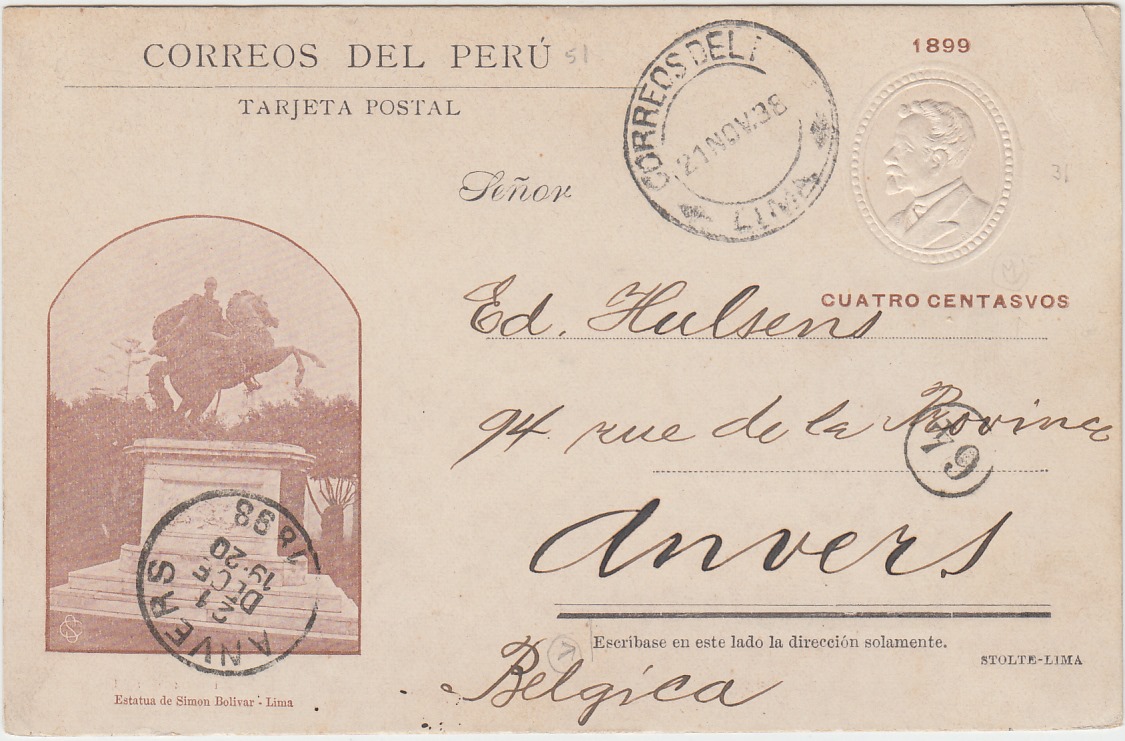 CORREOS DEL PERÚ 51
TARJETA POSTAL
CORREOS DEL
21 NOV. 98
LIMA
1899
31
CUATRO CENTASVOS
Señor
Ed. Hulsens
94 rue de la Province
79
Anvers
Belgica
Escríbase en este lado la dirección solamente.
STOLTE-LIMA
ANVERS
19-20
DECE
21
1898
Estatua de Simon Bolivar - Lima